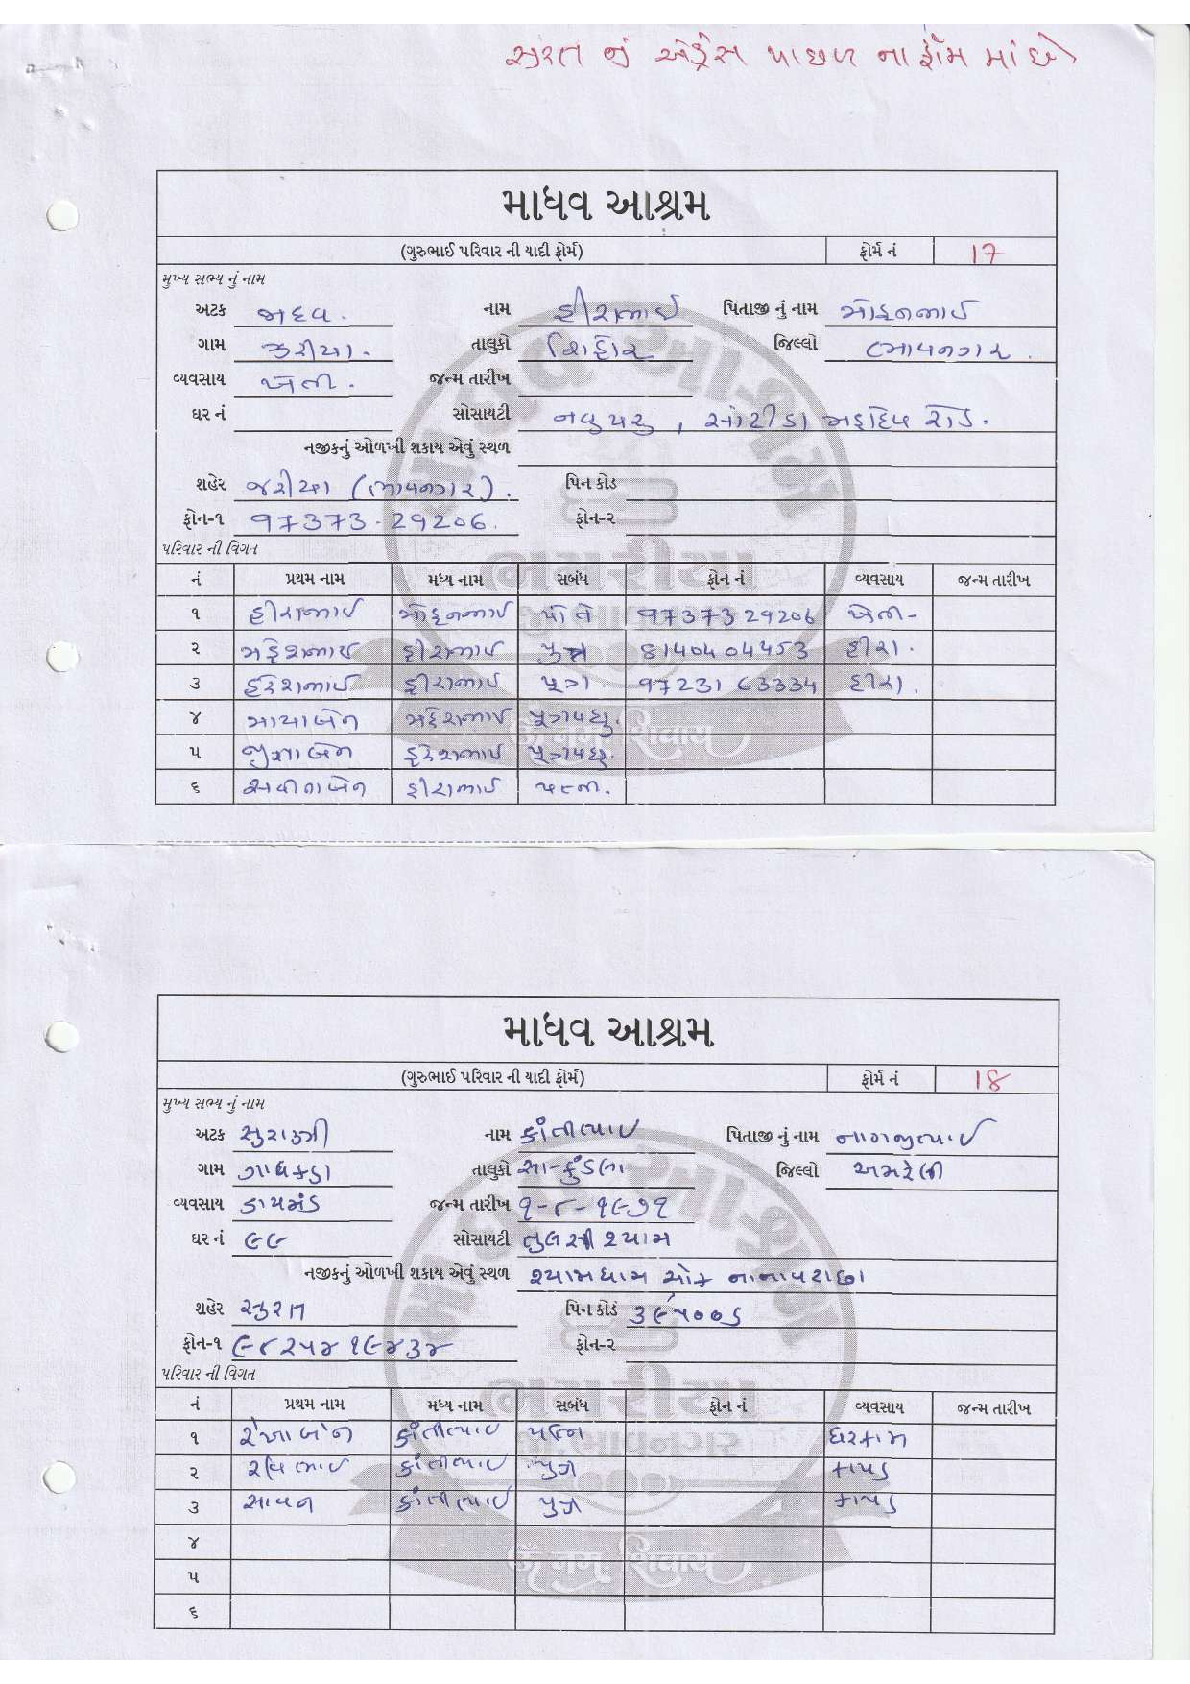 સુરત નું એડ્રેસ પાછળ ના ફોર્મ માં છે
માધવ આશ્રમ
(ગુરુભાઈ પરિવાર ની યાદી ફોર્મ) ફોર્મ નં 17
મુખ્ય સભ્ય નું નામ
અટક જાદવ. નામ હીરાભાઈ પિતાજી નું નામ મોહનભાઈ
ગામ જરીયા. તાલુકો શિહોર જિલ્લો ભાવનગર.
વ્યવસાય ખેતી. જન્મ તારીખ
ઘર નં સોસાયટી નવુપરુ, રોડ.
નજીકનું ઓળખી શકાય એવું સ્થળ
શહેર જરીયા (ભાવનગર). પિન કોડ
ફોન-૧ 97373-29206. ફોન-૨
પરિવાર ની વિગત
નં પ્રથમ નામ મધ્ય નામ સબંધ ફોન નં વ્યવસાય જન્મ તારીખ
૧ હીરાભાઈ મોહનભાઈ પોતે 9737329206 ખેતી-
૨ મહેશભાઈ હીરાભાઈ પુત્ર 8140404453 હીરા.
૩ હરેશભાઈ હીરાભાઈ પુત્ર 9723163334 હીરા.
૪ માયાબેન મહેશભાઈ પુત્રવધુ.
૫ હરેશભાઈ પુત્રવધુ.
૬ સવીતાબેન હીરાભાઈ પત્ની.
માધવ આશ્રમ
(ગુરુભાઈ પરિવાર ની યાદી ફોર્મ) ફોર્મ નં 18
મુખ્ય સભ્ય નું નામ
અટક નામ કાંતીભાઈ પિતાજી નું નામ નાગજીભાઈ
ગામ ગાધકડા તાલુકો સા-કુંડલા જિલ્લો અમરેલી
વ્યવસાય ડાયમંડ જન્મ તારીખ ૧-૮-૧૯૭૧
ઘર નં ૯૯ સોસાયટી તુલસી શ્યામ
નજીકનું ઓળખી શકાય એવું સ્થળ શ્યામધામ ચોક નાનાવરાછા
શહેર સુરત પિન કોડ ૩૯૫૦૦૬
ફોન-૧ ૯૮૨૫૪૧૯૪૩૪ ફોન-૨
પરિવાર ની વિગત
નં પ્રથમ નામ મધ્ય નામ સબંધ ફોન નં વ્યવસાય જન્મ તારીખ
૧ રેખાબેન કાંતીભાઈ પત્નિ ઘરકામ
૨ રવિભાઈ કાંતીભાઈ પુત્ર કાપડ
૩ સાવન કાંતીભાઈ પુત્ર કાપડ
૪
૫
૬